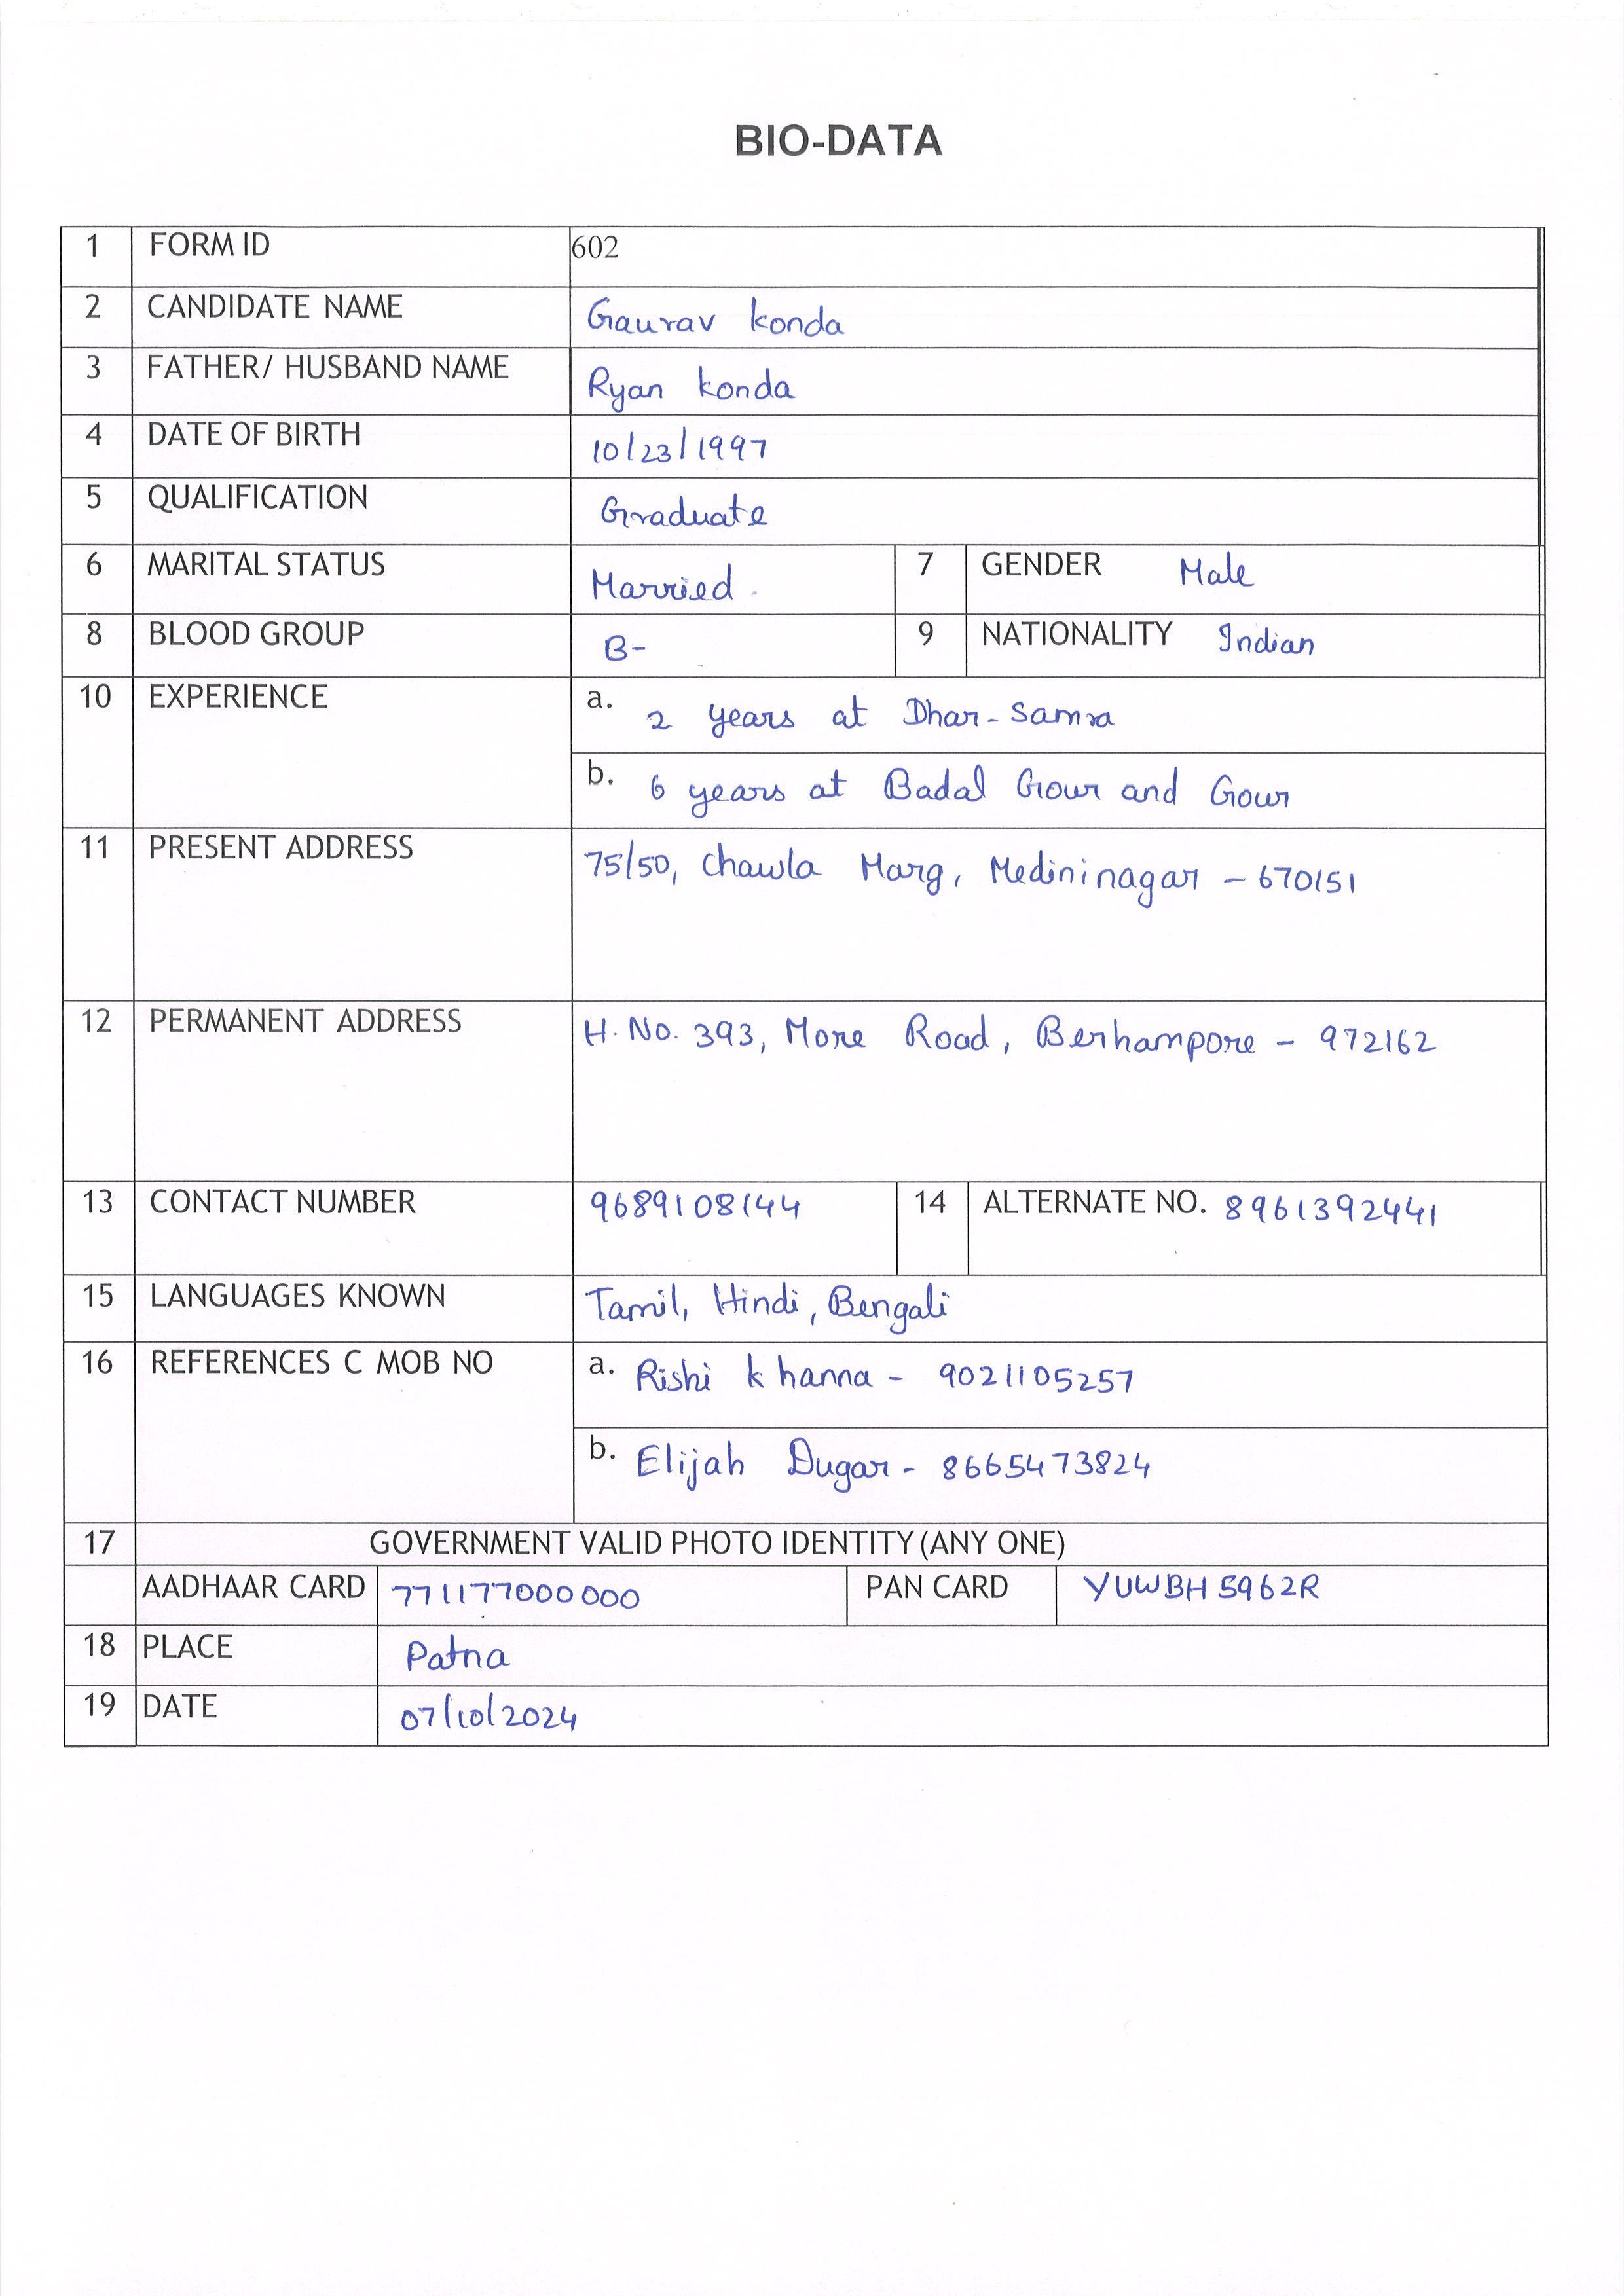 BIO-DATA
1 FORM ID 602
2 CANDIDATE NAME Gaurav Konda
3 FATHER/ HUSBAND NAME Ryan Konda
4 DATE OF BIRTH 10/23/1997
5 QUALIFICATION Graduate
6 MARITAL STATUS Married 7 GENDER Male
8 BLOOD GROUP B- 9 NATIONALITY Indian
10 EXPERIENCE a. 2 years at Dhar-Samra
b. 6 years at Badal Gour and Gour
11 PRESENT ADDRESS 75/50, Chawla Marg, Medininagar - 670151
12 PERMANENT ADDRESS H. No. 393, More Road, Berhampore - 972162
13 CONTACT NUMBER 9689108144 14 ALTERNATE NO. 8961392441
15 LANGUAGES KNOWN Tamil, Hindi, Bengali
16 REFERENCES C MOB NO a. Rishi Khanna - 9021105257
b. Elijah Dugar - 8665473824
17 GOVERNMENT VALID PHOTO IDENTITY (ANY ONE)
AADHAAR CARD 771177000000 PAN CARD YUWBH5962R
18 PLACE Patna
19 DATE 07/10/2024